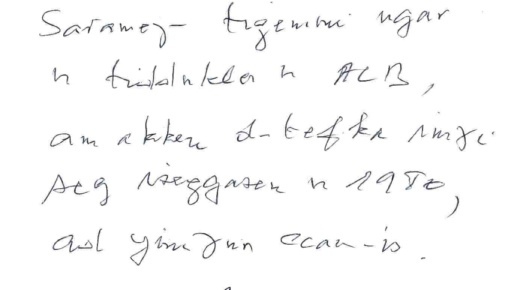 Sarameɣ- tigemmi ugar
n tiddukla n ACB,
am akken d-tefka imɣi
deg iseggasen n 1980,
ad yimɣur ccan-is.